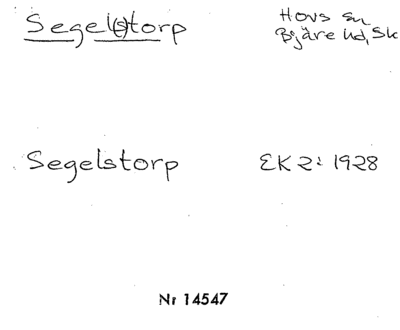 Segel(s)torp
Hovs sn
Bjäre hd, Sk
Segelstorp
EK 2: 1928
Nr 14547